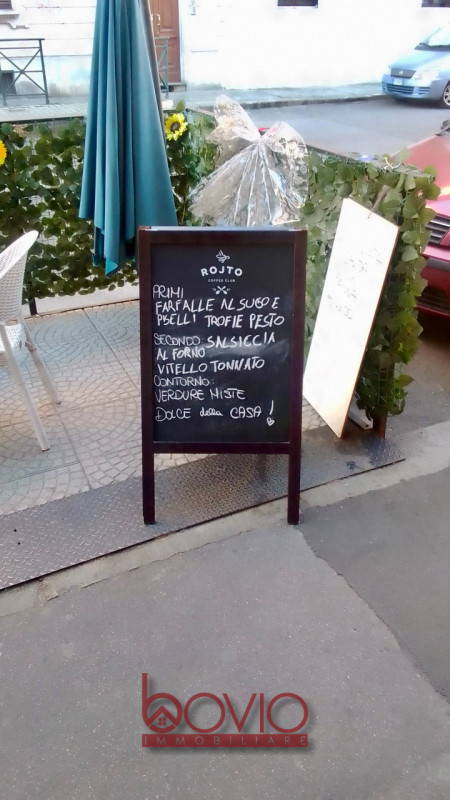 ROJTO
COFFEE CLUB
PRIMI
FARFALLE AL SUGO E
PISELLI TROFIE PESTO
SECONDO: SALSICCIA
AL FORNO
VITELLO TONNATO
CONTORNO:
VERDURE MISTE
DOLCE della CASA!
bovio
IMMOBILIARE